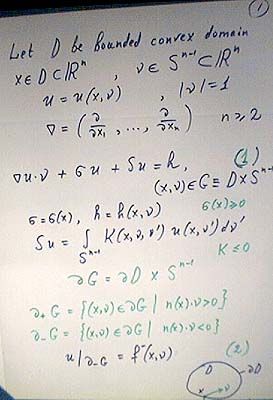 1
Let D be bounded convex domain
x ∈ D ⊂ ℝⁿ , ν ∈ Sⁿ⁻¹ ⊂ ℝⁿ
u = u(x,ν) , |ν| = 1
∇ = (∂/∂x₁, ..., ∂/∂xₙ) n ≥ 2
∇u·ν + σu + Su = h, (1)
(x,ν) ∈ G ≡ D × Sⁿ⁻¹
σ = σ(x), h = h(x,ν) σ(x) ≥ 0
Su = ∫ K(x,ν,ν') u(x,ν') dν'
Sⁿ⁻¹ K ≤ 0
∂G = ∂D × Sⁿ⁻¹
∂₊G = {(x,ν) ∈ ∂G | n(x)·ν > 0}
∂₋G = {(x,ν) ∈ ∂G | n(x)·ν < 0}
u|∂₋G = f⁻(x,ν) (2)
D ∂D
x ν